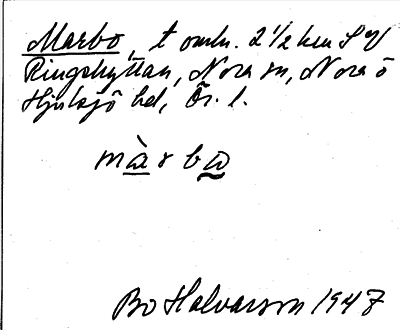 Marbo, t omr. 2 1/2 km S of
Ringshyttan, Nora sn, Nora o
Hjulsjö hd, Ör. l.
màrbω
Bo Halvarson 1947